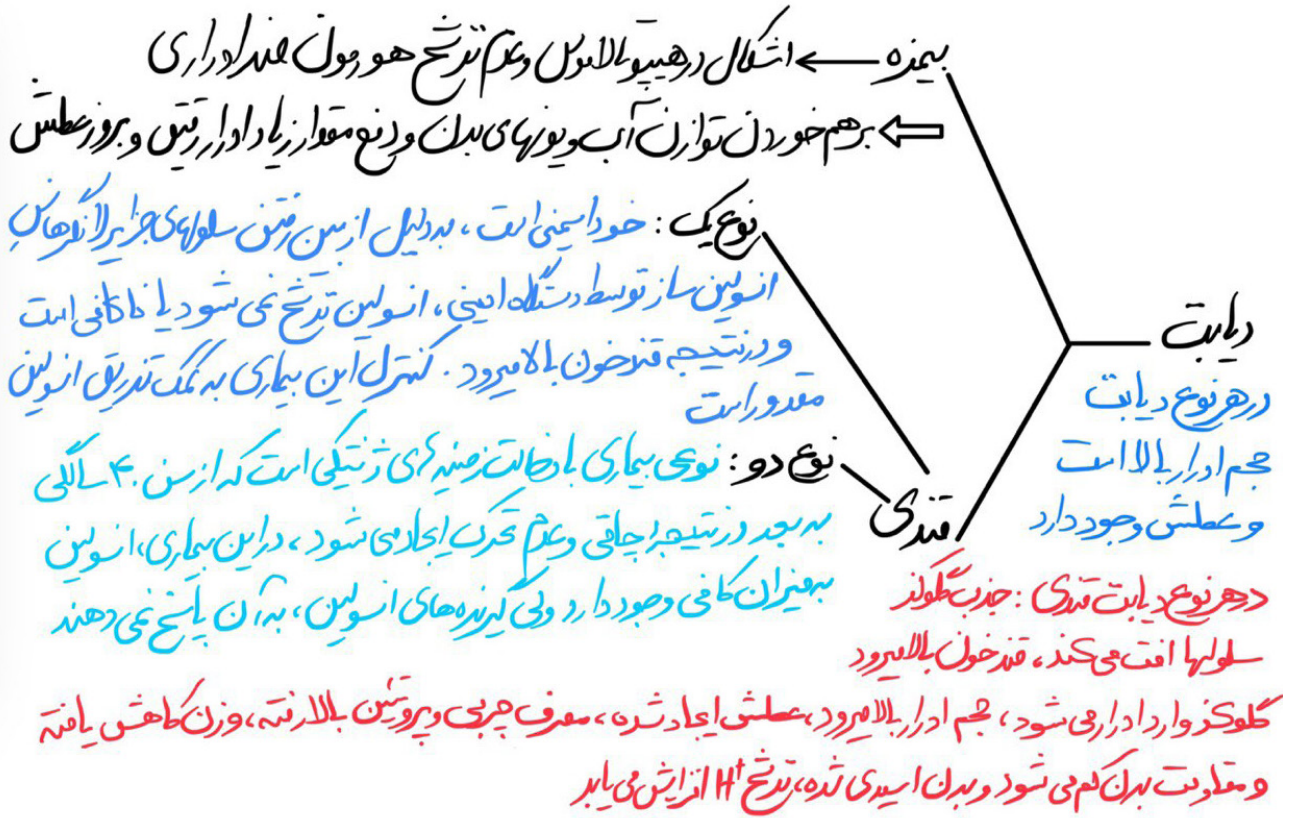 بیمزه ← اشکال در هیپوتالاموس و عدم ترشح هورمون ضد ادراری
⇐ برهم خوردن توازن آب و یونهای بدن و دفع مقدار زیاد ادرار رقیق و بروز عطش
نوع یک : خود ایمنی است ، به دلیل از بین رفتن سلولهای جزایر لانگرهانس
انسولین ساز توسط دستگاه ایمنی ، انسولین ترشح نمی شود یا ناکافی است
و در نتیجه قند خون بالا میرود . کنترل این بیماری به کمک تزریق انسولین
مقدور است
دیابت
در هر نوع دیابت
حجم ادرار بالا است
و عطش وجود دارد
نوع دو : نوعی بیماری با دخالت زمینه های ژنتیکی است که از سن ۴۰ سالگی
به بعد در نتیجه چاقی و عدم تحرک ایجاد می شود ، در این بیماری ، انسولین
به میزان کافی وجود دارد ولی گیرنده های انسولین ، به آن پاسخ نمی دهند
قندی
در هر نوع دیابت قندی : جذب گلوکز
سلولها افت می کند ، قند خون بالا میرود
گلوکز وارد ادرار می شود ، حجم ادرار بالا میرود ، عطش ایجاد شده ، مصرف چربی و پروتئین بالا رفته ، وزن کاهش یافته
و مقاومت بدن کم می شود و بدن اسیدی شده ، ترشح H⁺ افزایش می یابد